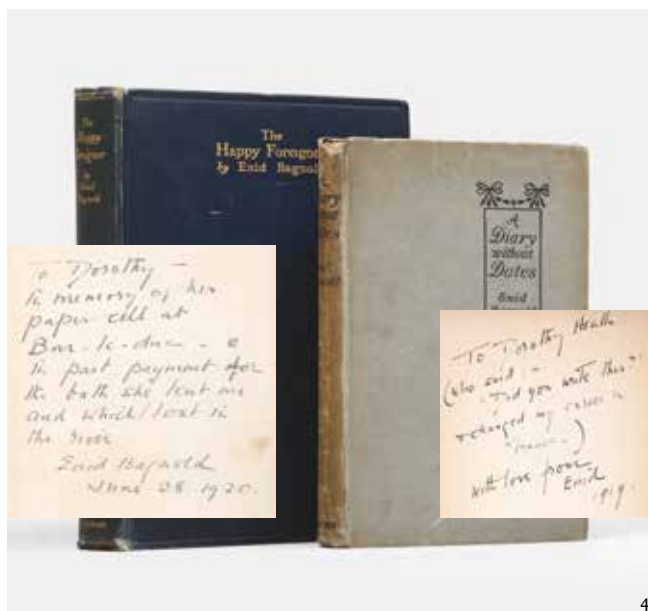 The
Happy
by
Enid
The
Happy Foreigner
by Enid Bagnold
A
Diary
without
Dates
Enid
To Dorothy –
in memory of her
paper cell at
Bar-le-duc –
In part payment for
the bath she lent me
and which I lost in
the river
Enid Bagnold
June 28. 1920.
To Dorothy Heath
(who said –
"Did you write this?"
& changed my
)
with love from
Enid
1919.
4